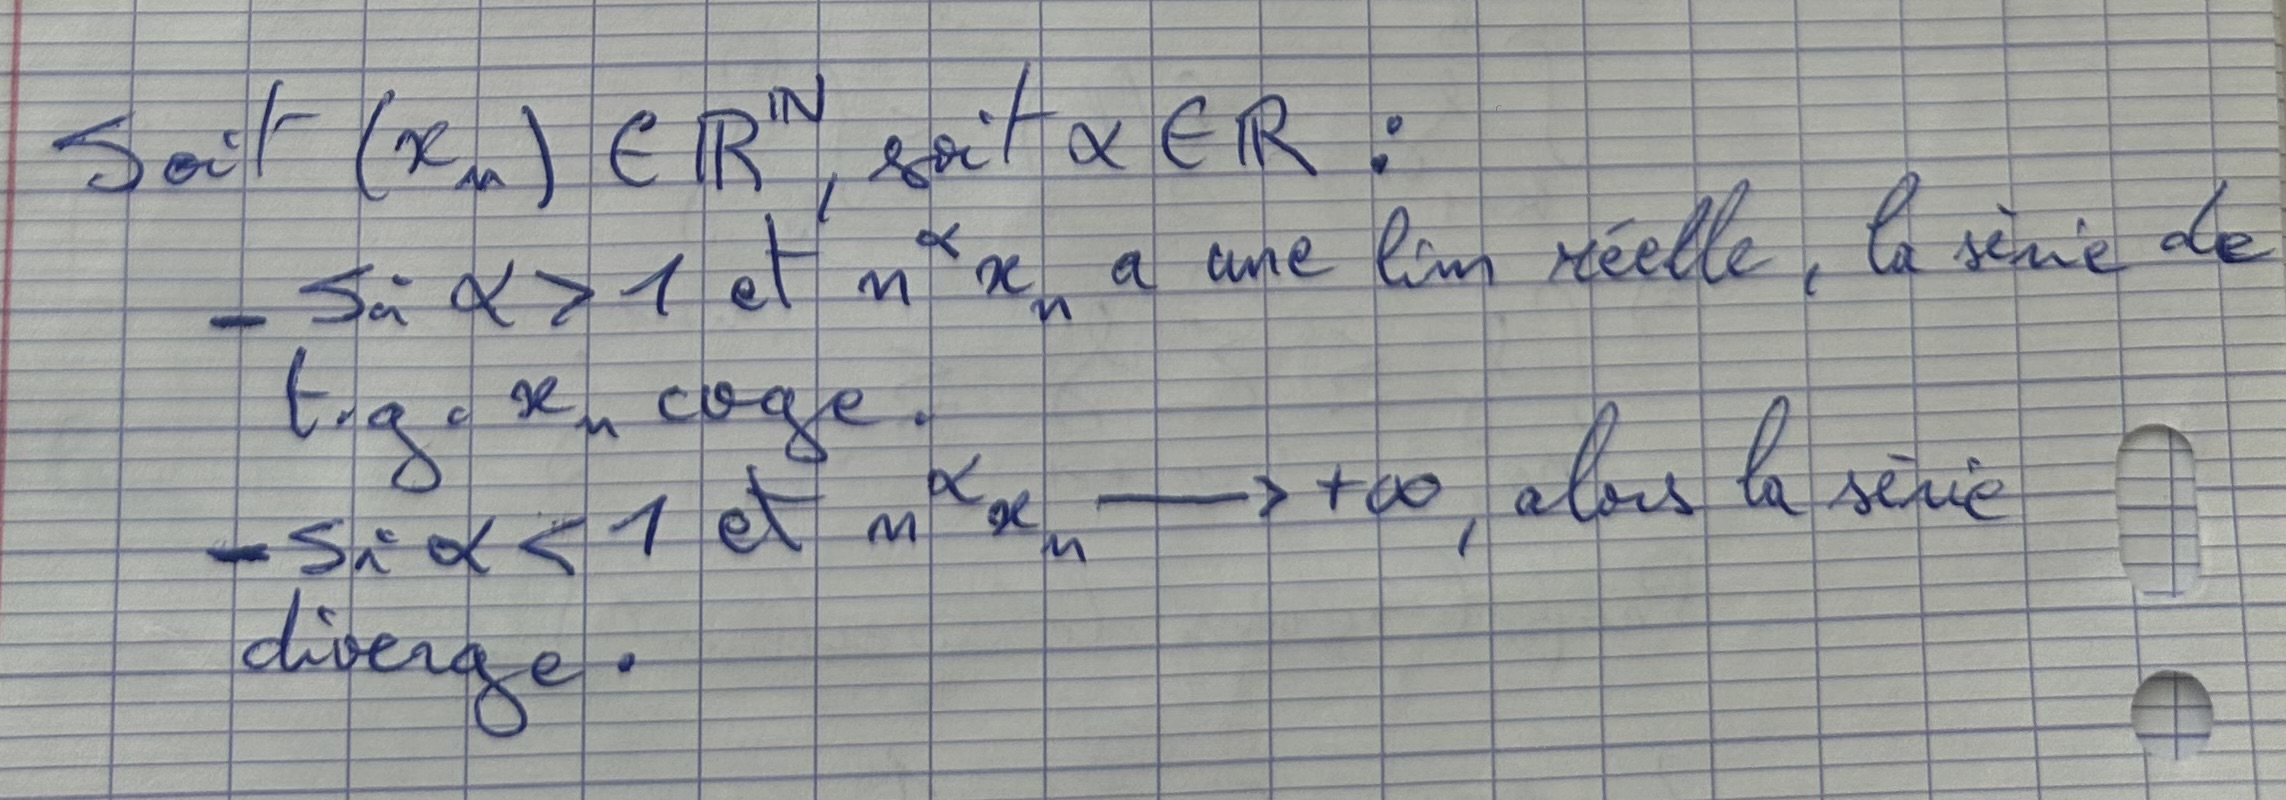 Soit (xₙ) ∈ ℝ^ℕ, soit α ∈ ℝ :
- Si α > 1 et n^α xₙ a une lim réelle, la série de
t.g. xₙ cvge.
- Si α < 1 et n^α xₙ ⟶ +∞, alors la série
diverge.